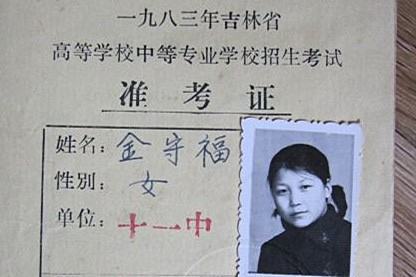 一九八三年吉林省
高等学校中等专业学校招生考试
准考证
姓名：金守福
性别：女
单位：十一中